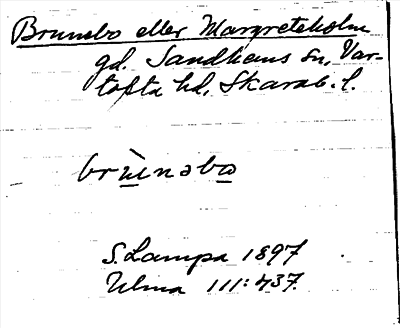 Brunsbo eller Margreteholm
gd. Sandhems sn, Var-
tofta hd, Skarab. l.
brùnsbo
S. Lampa 1897
Ulma 111:437.